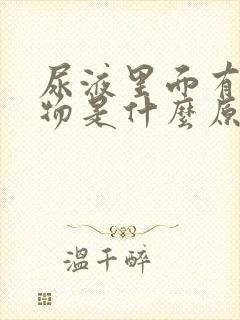 尿液里而有
物是什麼原
溫千醉